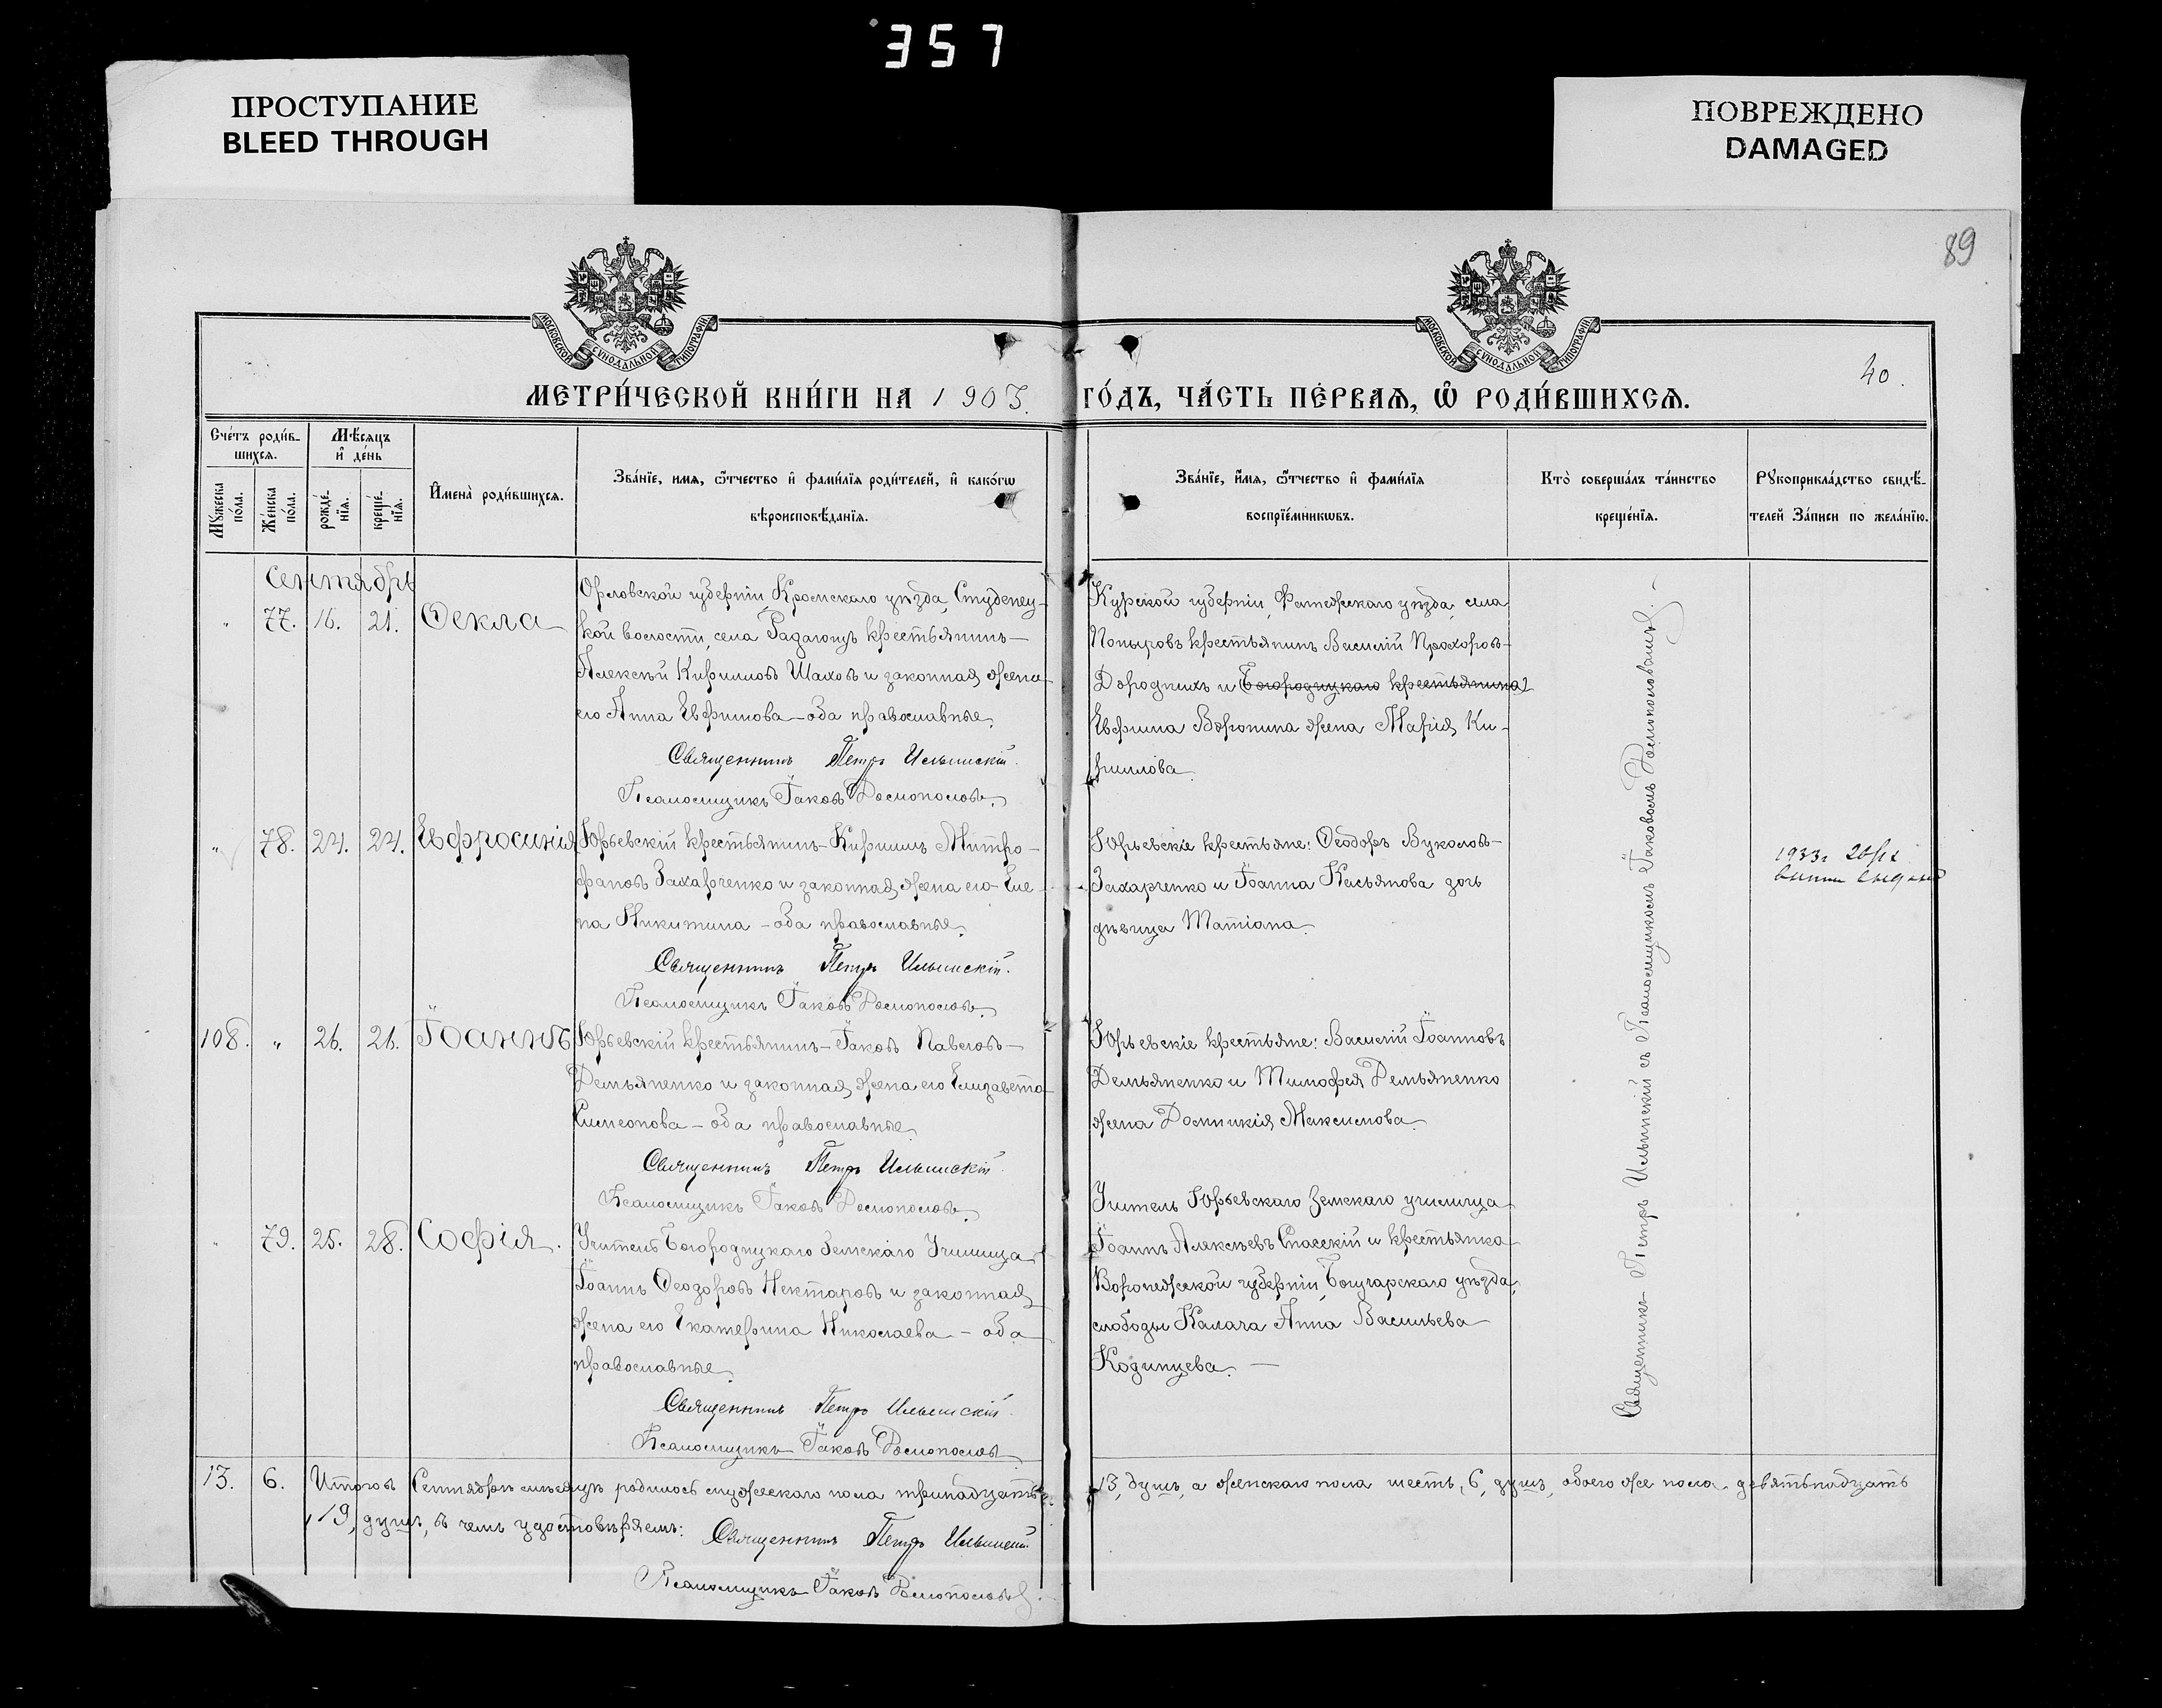 357
ПРОСТУПАНИЕ
BLEED THROUGH
ПОВРЕЖДЕНО
DAMAGED
89
40.
МОСКОВСКОЙ СѴНОДАЛЬНОЙ ТИПОГРАФІИ
МОСКОВСКОЙ СѴНОДАЛЬНОЙ ТИПОГРАФІИ
МЕТРИ́ЧЕСКОЙ КНИ́ГИ НА 1903.
ГО́ДЪ, ЧА́СТЬ ПЕ́РВАЯ, Ѡ РОДИ́ВШИХСЯ.
Сче́тъ роди́в-
шихся.
Мѣ́сяцъ
и де́нь
Му́жеска
по́ла.
Же́нска
по́ла.
рожде́-
нїя.
креще́-
нїя.
Имена̀ роди́вшихся.
Зва́нїе, имя, ѻ́тчество и фами́лїя роди́телей, и како́гѡ
вѣроисповѣ́данїя.
Зва́нїе, и́мя, ѻ́тчество и фами́лїя
воспрїе́мникѡвъ.
Кто̀ соверша́лъ та́инство
креще́нїя.
Рꙋкоприкла́дство свидѣ́-
телей За́писи по жела́нїю.
Сентябрь
" 77. 16. 21. Ѳекла
Орловской губерніи, Кромскаго уѣзда, Студенец-
кой волости, села Радагощъ крестьянинъ
Алексѣй Кирилловъ Шаховъ и законная жена
его Анна Евфимова – оба православные.
Священникъ Петръ Ильинскій.
Псаломщикъ Іаковъ Роспопова.
Курской губерніи, Фатежскаго уѣзда, села
Попыровъ крестьянинъ Василій Прохоровъ
Дородныхъ и Богородицкаго крестьянина
Евфима Воронина жена Марія Ки-
риллова.
" 78. 24. 24. Евфросинія
Юрьевскій крестьянинъ Кириллъ Митро-
фановъ Захарченко и законная жена его Еле-
на Никитина – оба православные.
Священникъ Петръ Ильинскій.
Псаломщикъ Іаковъ
Юрьевскіе крестьяне: Ѳеодоръ Вуколовъ
Захарченко и Іоанна Касьянова дочь
дѣвица Татіана.
1933г
108. " 26. 26. Іоаннъ
Юрьевскій крестьянинъ Іаковъ Павловъ
Демьяненко и законная жена его Елизавета
Симеонова – оба православные.
Священникъ Петръ Ильинскій.
Псаломщикъ Іаковъ
Юрьевскіе крестьяне: Василій Іоанновъ
Демьяненко и Тимофея Демьяненко
жена Домникія Максимова.
" 79. 25. 28. Софія.
Учитель Богородицкаго Земскаго Училища
Іоаннъ Ѳеодоровъ Нектаровъ и законная
жена его Екатерина Николаева – оба
православные.
Священникъ Петръ Ильинскій.
Псаломщикъ Іаковъ
Учитель Юрьевскаго Земскаго училища
Іоаннъ Алексѣевъ Спасскій и крестьянка
Воронежской губерніи, Богучарскаго уѣзда,
слободы Калача Анна Васильева
Кодинцева.
Священникъ Петръ Ильинскій съ Псаломщикомъ Іаковомъ
13. 6. Итого въ Сентябрѣ мѣсяцѣ родилось мужескаго пола тринадцать
13, душъ, а женскаго пола шесть, 6, душъ, обоего же пола девятьнадцать
, 19, душъ, въ чемъ удостовѣряемъ:
Священникъ Петръ Ильинскій
Псаломщикъ Іаковъ